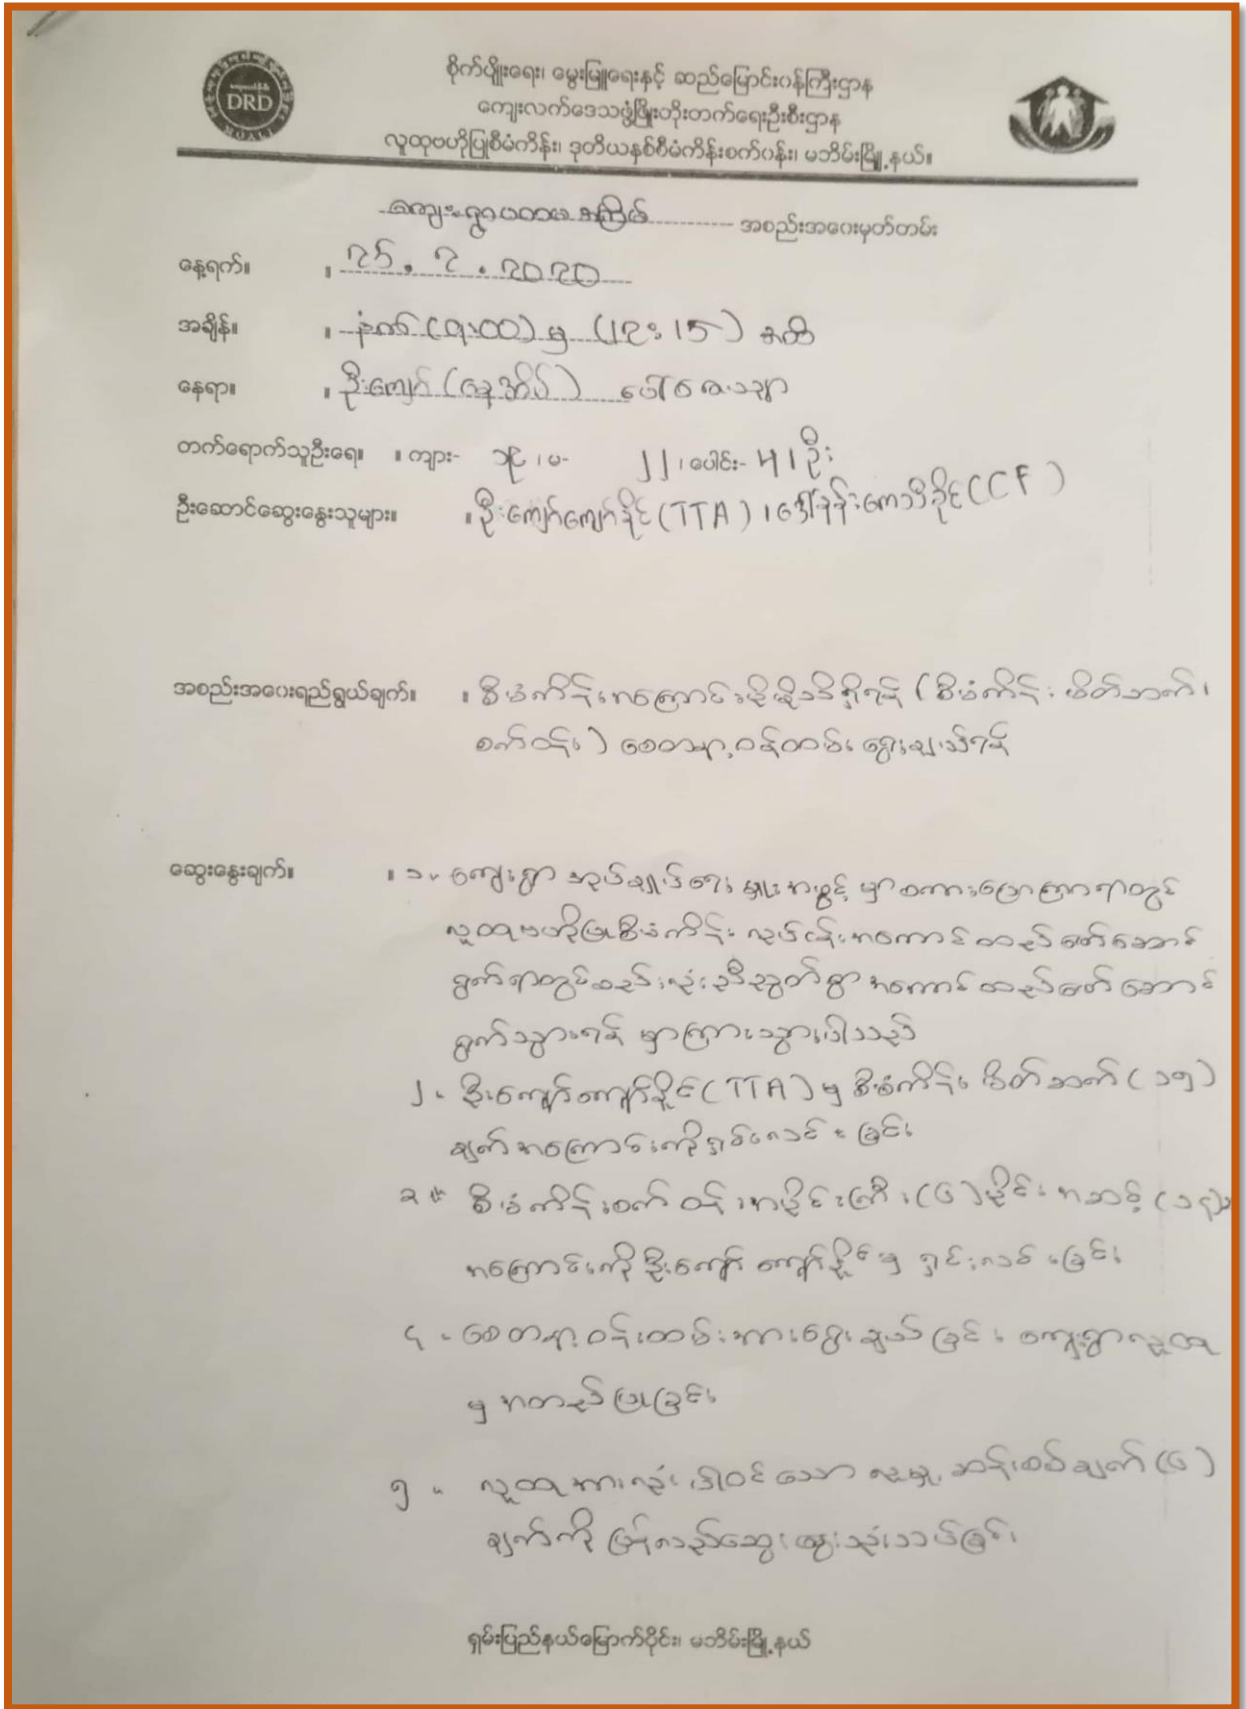 DRD
MOALI
စိုက်ပျိုးရေး၊ မွေးမြူရေးနှင့် ဆည်မြောင်းဝန်ကြီးဌာန
ကျေးလက်ဒေသဖွံ့ဖြိုးတိုးတက်ရေးဦးစီးဌာန
လူထုဗဟိုပြုစီမံကိန်း၊ ဒုတိယနှစ်စီမံကိန်းစက်ဝန်း၊ မဘိမ်းမြို့နယ်။
ကျေးရွာပထမအကြိမ် အစည်းအဝေးမှတ်တမ်း
နေ့ရက်။ ။ ၂၅.၂.၂၀၂၀
အချိန်။ ။ နံနက် (၉:၀၀) မှ (၁၂: ၁၅) အထိ
နေရာ။ ။ ဦးကျော် (နေအိမ်)
တက်ရောက်သူဦးရေ။ ။ ကျား- ၁၉ ၊ မ- ၂၂ ၊ ပေါင်း- ၄၁ ဦး
ဦးဆောင်ဆွေးနွေးသူများ။ ။ ဦးကျော်ကျော်နိုင် (TTA) ၊ ဒေါ်နန်းကေသီခိုင် (CCF)
အစည်းအဝေးရည်ရွယ်ချက်။ ။ စီမံကိန်းအကြောင်းမိမိသိရှိရန် (စီမံကိန်း ဖိတ်ဘက်၊
စက်ဝန်း) စေတနာ့ဝန်ထမ်း ရွေးချယ်ရန်
ဆွေးနွေးချက်။ ။ ၁. ကျေးရွာ အုပ်ချုပ်ရေး မှူးအဖွင့် မှာစကားပြောကြားရာတွင်
လူထုဗဟိုပြုစီမံကိန်း လုပ်ငန်းအကောင်ထည်ဖော်ဆောင်
ရွက်ရာတွင်စည်းလုံးညီညွတ်စွာ အကောင်ထည်ဖော်ဆောင်
ရွက်သွားရန် မှာကြားသွားပါသည်
၂. ဦးကျော်ကျော်နိုင် (TTA) မှ စီမံကိန်း ဖိတ်ဘက် (၁၅)
ချက်အကြောင်းကိုရှင်းလင်းခြင်း
၃. စီမံကိန်းစက်ဝန်းအပိုင်းကြီး (၆) ပိုင်း အဆင့် (၁၄)
အကြောင်းကိုဦးကျော်ကျော်နိုင်မှ ရှင်းလင်းခြင်း
၄. စေတနာ့ဝန်းထမ်းအားရွေးချယ်ခြင်း ကျေးရွာလူထု
မှ အတည်ပြုခြင်း
၅. လူထုအားလုံးပါဝင်သော လူမှုဆန်းစစ်ချက် (၆)
ချက်ကို ပြန်လည်ဆွေးနွေးသုံးသပ်ခြင်း
ရှမ်းပြည်နယ်မြောက်ပိုင်း၊ မဘိမ်းမြို့နယ်